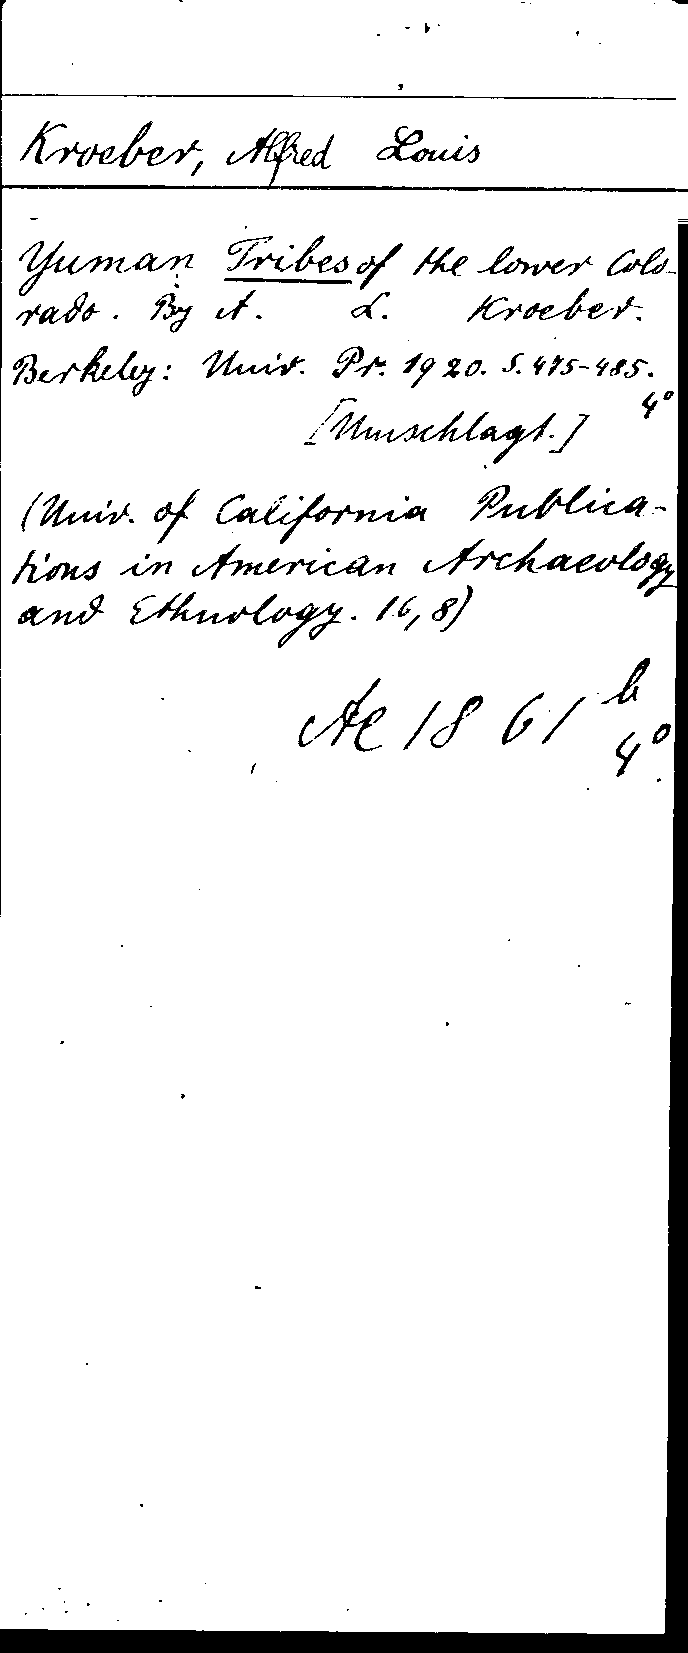 Kroeber, Alfred Louis
Yuman Tribes of the lower Colo-
rado. By A. L. Kroeber.
Berkeley: Univ. Pr. 1920. S. 475-485.
4°
[Umschlagt.]
(Univ. of California Publica-
tions in American Archaeology
and Ethnology. 16,8)
Ae 1861 b
4°